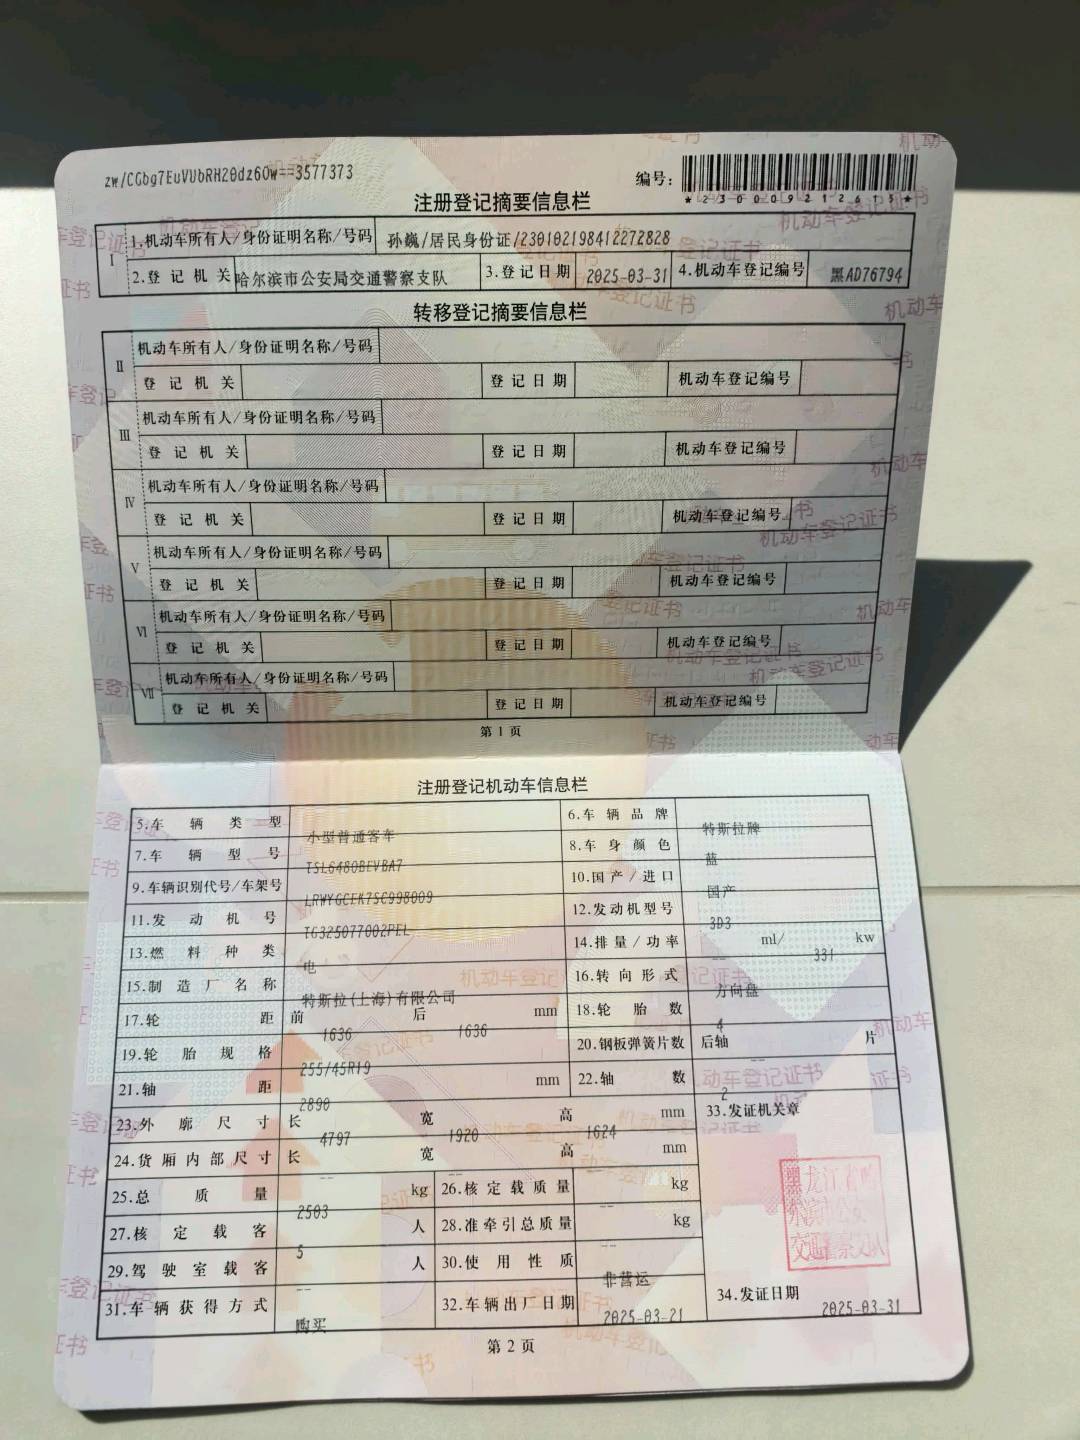 zw/CGbg7EuVUbRH20dz60w==3577373
编号：
*230009212615*
注册登记摘要信息栏
Ⅰ
1.机动车所有人/身份证明名称/号码 孙巍/居民身份证/230102198412272828
2.登记机关 哈尔滨市公安局交通警察支队 3.登记日期 2025-03-31 4.机动车登记编号 黑AD76794
转移登记摘要信息栏
Ⅱ
机动车所有人/身份证明名称/号码
登记机关 登记日期 机动车登记编号
Ⅲ
机动车所有人/身份证明名称/号码
登记机关 登记日期 机动车登记编号
Ⅳ
机动车所有人/身份证明名称/号码
登记机关 登记日期 机动车登记编号
Ⅴ
机动车所有人/身份证明名称/号码
登记机关 登记日期 机动车登记编号
Ⅵ
机动车所有人/身份证明名称/号码
登记机关 登记日期 机动车登记编号
Ⅶ
机动车所有人/身份证明名称/号码
登记机关 登记日期 机动车登记编号
第1页
注册登记机动车信息栏
5.车辆类型 小型普通客车 6.车辆品牌 特斯拉牌
7.车辆型号 TSL6480BEVBA7 8.车身颜色 蓝
9.车辆识别代号/车架号 LRWYGCEK7SC998009 10.国产/进口 国产
11.发动机号 TG325077002PEL 12.发动机型号 3D3
13.燃料种类 电 14.排量/功率 -- ml/ 331 kw
15.制造厂名称 特斯拉(上海)有限公司 16.转向形式 方向盘
17.轮距 前 1636 后 1636 mm 18.轮胎数 4
19.轮胎规格 255/45R19 20.钢板弹簧片数 后轴 -- 片
21.轴距 2890 mm 22.轴数 2
23.外廓尺寸 长 4797 宽 1920 高 1624 mm 33.发证机关章
24.货厢内部尺寸 长 -- 宽 -- 高 -- mm
25.总质量 2503 kg 26.核定载质量 -- kg
27.核定载客 5 人 28.准牵引总质量 -- kg
29.驾驶室载客 -- 人 30.使用性质 非营运
31.车辆获得方式 购买 32.车辆出厂日期 2025-03-21 34.发证日期 2025-03-31
黑龙江省哈
尔滨市公安
交通警察支队
第2页